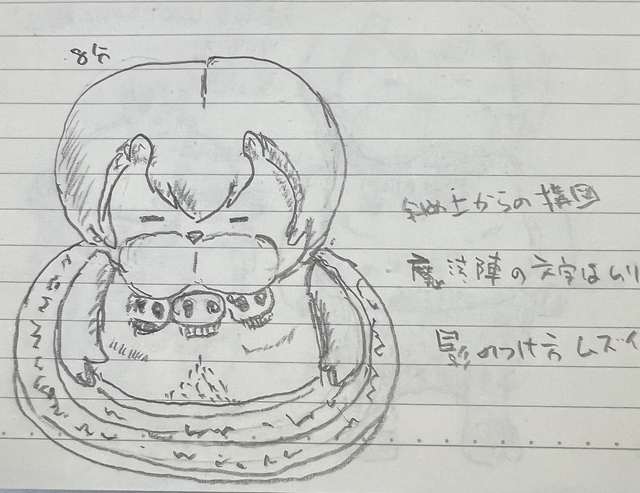 8分
斜め上からの構図
魔法陣の文字はムリ
影のつけ方ムズイ